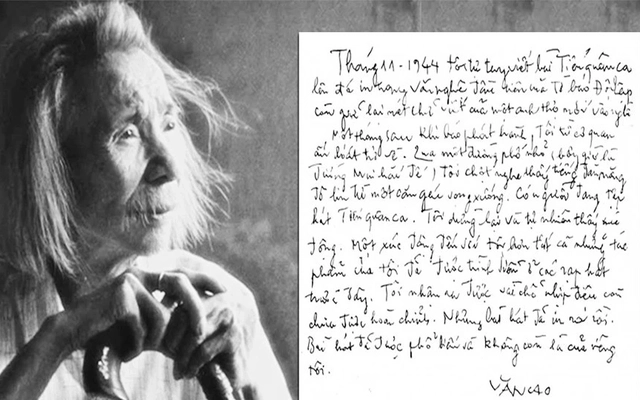 Tháng 11 - 1944 tôi tự tay viết bài Tiến quân ca
lên đá in trang văn nghệ đầu tiên của tờ báo Độc lập
còn giữ lại nét chữ viết của một anh thợ mới vào nghề
Một tháng sau khi báo phát hành, tôi từ cơ quan
ấn loát trở về. Qua một đường phố nhỏ (bây giờ là
đường Mai hắc Đế) tôi chợt nghe thấy tiếng đàn măng
đô lin từ một căn gác vọng xuống. Có người đang tập
hát Tiến quân ca. Tôi dừng lại và tự nhiên thấy xúc
động. Một xúc động đến với tôi hơn tất cả những tác
phẩm của tôi đã được trình diễn ở các rạp hát
trước đây. Tôi nhận ra được vài chỗ nhịp điệu còn
chưa được hoàn chỉnh. Nhưng bài hát đã in ra rồi.
Bài hát đã được phổ biến và không còn là của riêng
tôi.
VĂN CAO